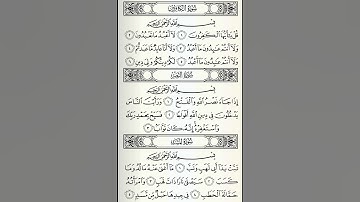 سُورَةُ الْكَافِرُونَ
بِسْمِ اللَّهِ الرَّحْمَٰنِ الرَّحِيمِ
قُلْ يَا أَيُّهَا الْكَافِرُونَ ١ لَا أَعْبُدُ مَا تَعْبُدُونَ ٢
وَلَا أَنتُمْ عَابِدُونَ مَا أَعْبُدُ ٣ وَلَا أَنَا عَابِدٌ مَّا عَبَدتُّمْ ٤
وَلَا أَنتُمْ عَابِدُونَ مَا أَعْبُدُ ٥ لَكُمْ دِينُكُمْ وَلِيَ دِينِ ٦
سُورَةُ النَّصْرِ
بِسْمِ اللَّهِ الرَّحْمَٰنِ الرَّحِيمِ
إِذَا جَاءَ نَصْرُ اللَّهِ وَالْفَتْحُ ١ وَرَأَيْتَ النَّاسَ
يَدْخُلُونَ فِي دِينِ اللَّهِ أَفْوَاجًا ٢ فَسَبِّحْ بِحَمْدِ رَبِّكَ
وَاسْتَغْفِرْهُ إِنَّهُ كَانَ تَوَّابًا ٣
سُورَةُ المَسَدِ
بِسْمِ اللَّهِ الرَّحْمَٰنِ الرَّحِيمِ
تَبَّتْ يَدَا أَبِي لَهَبٍ وَتَبَّ ١ مَا أَغْنَىٰ عَنْهُ مَالُهُ وَمَا
كَسَبَ ٢ سَيَصْلَىٰ نَارًا ذَاتَ لَهَبٍ ٣ وَامْرَأَتُهُ
حَمَّالَةَ الْحَطَبِ ٤ فِي جِيدِهَا حَبْلٌ مِّن مَّسَدٍ ٥